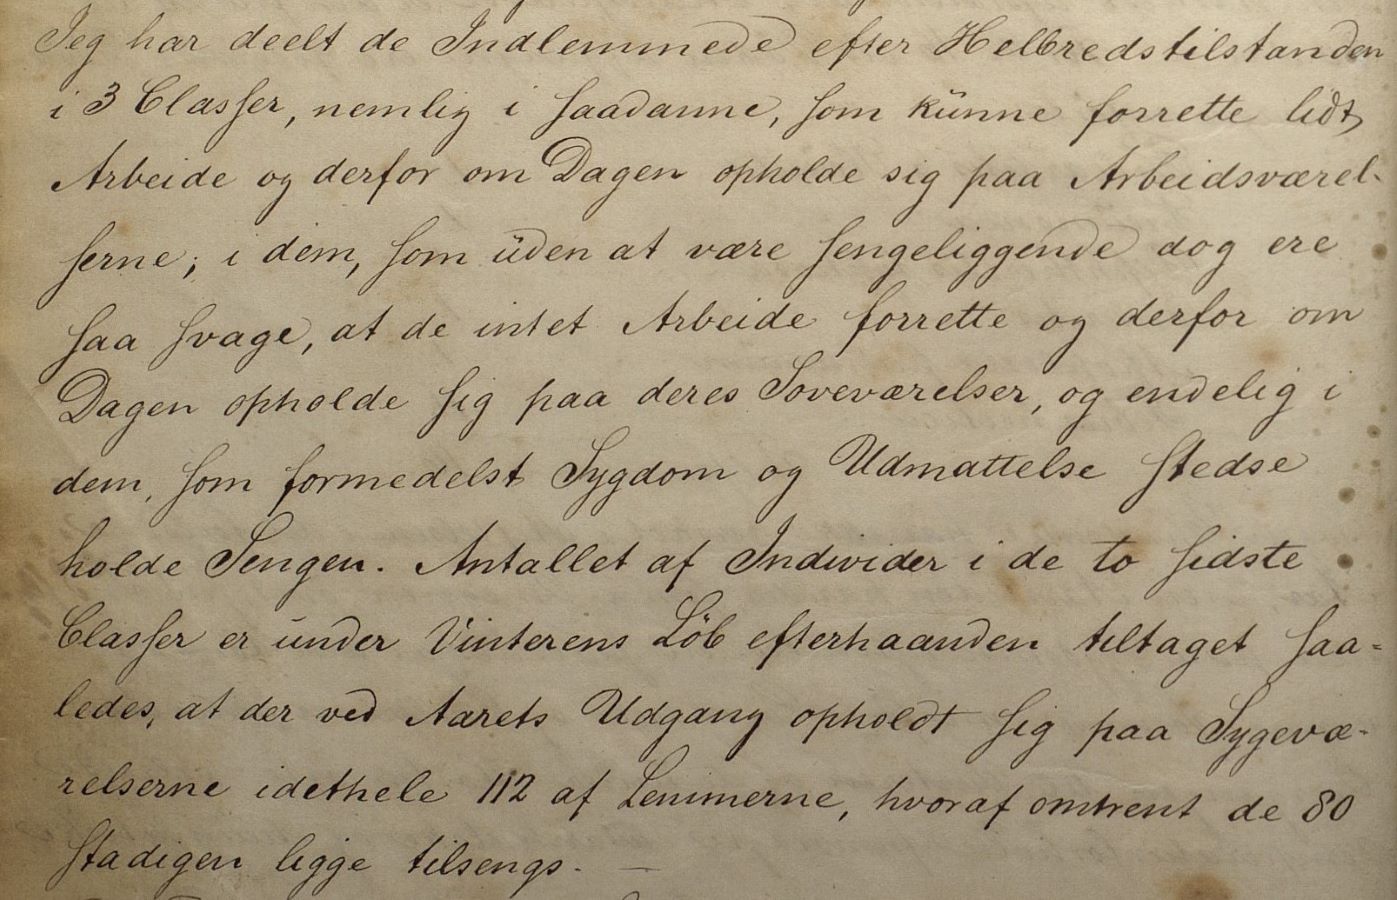 Jeg har deelt de Indlemmede efter Helbredstilstanden
i 3 Classer, nemlig i saadanne, som kunne forrette lidt
Arbeide og derfor om Dagen opholde sig paa Arbeidsværel-
serne; i dem, som uden at være sengeliggende dog ere
saa svage, at de intet Arbeide forrette og derfor om
Dagen opholde sig paa deres Soveværelser, og endelig i
dem, som formedelst Sygdom og Udmattelse stedse
holde Sengen. Antallet af Individer i de to sidste
Classer er under Vinterens Løb efterhaanden tiltaget saa=
ledes, at der ved Aarets Udgang opholdt sig paa Sygevæ-
relserne idethele 112 af Lemmerne, hvoraf omtrent de 80
stadigen ligge tilsengs. —